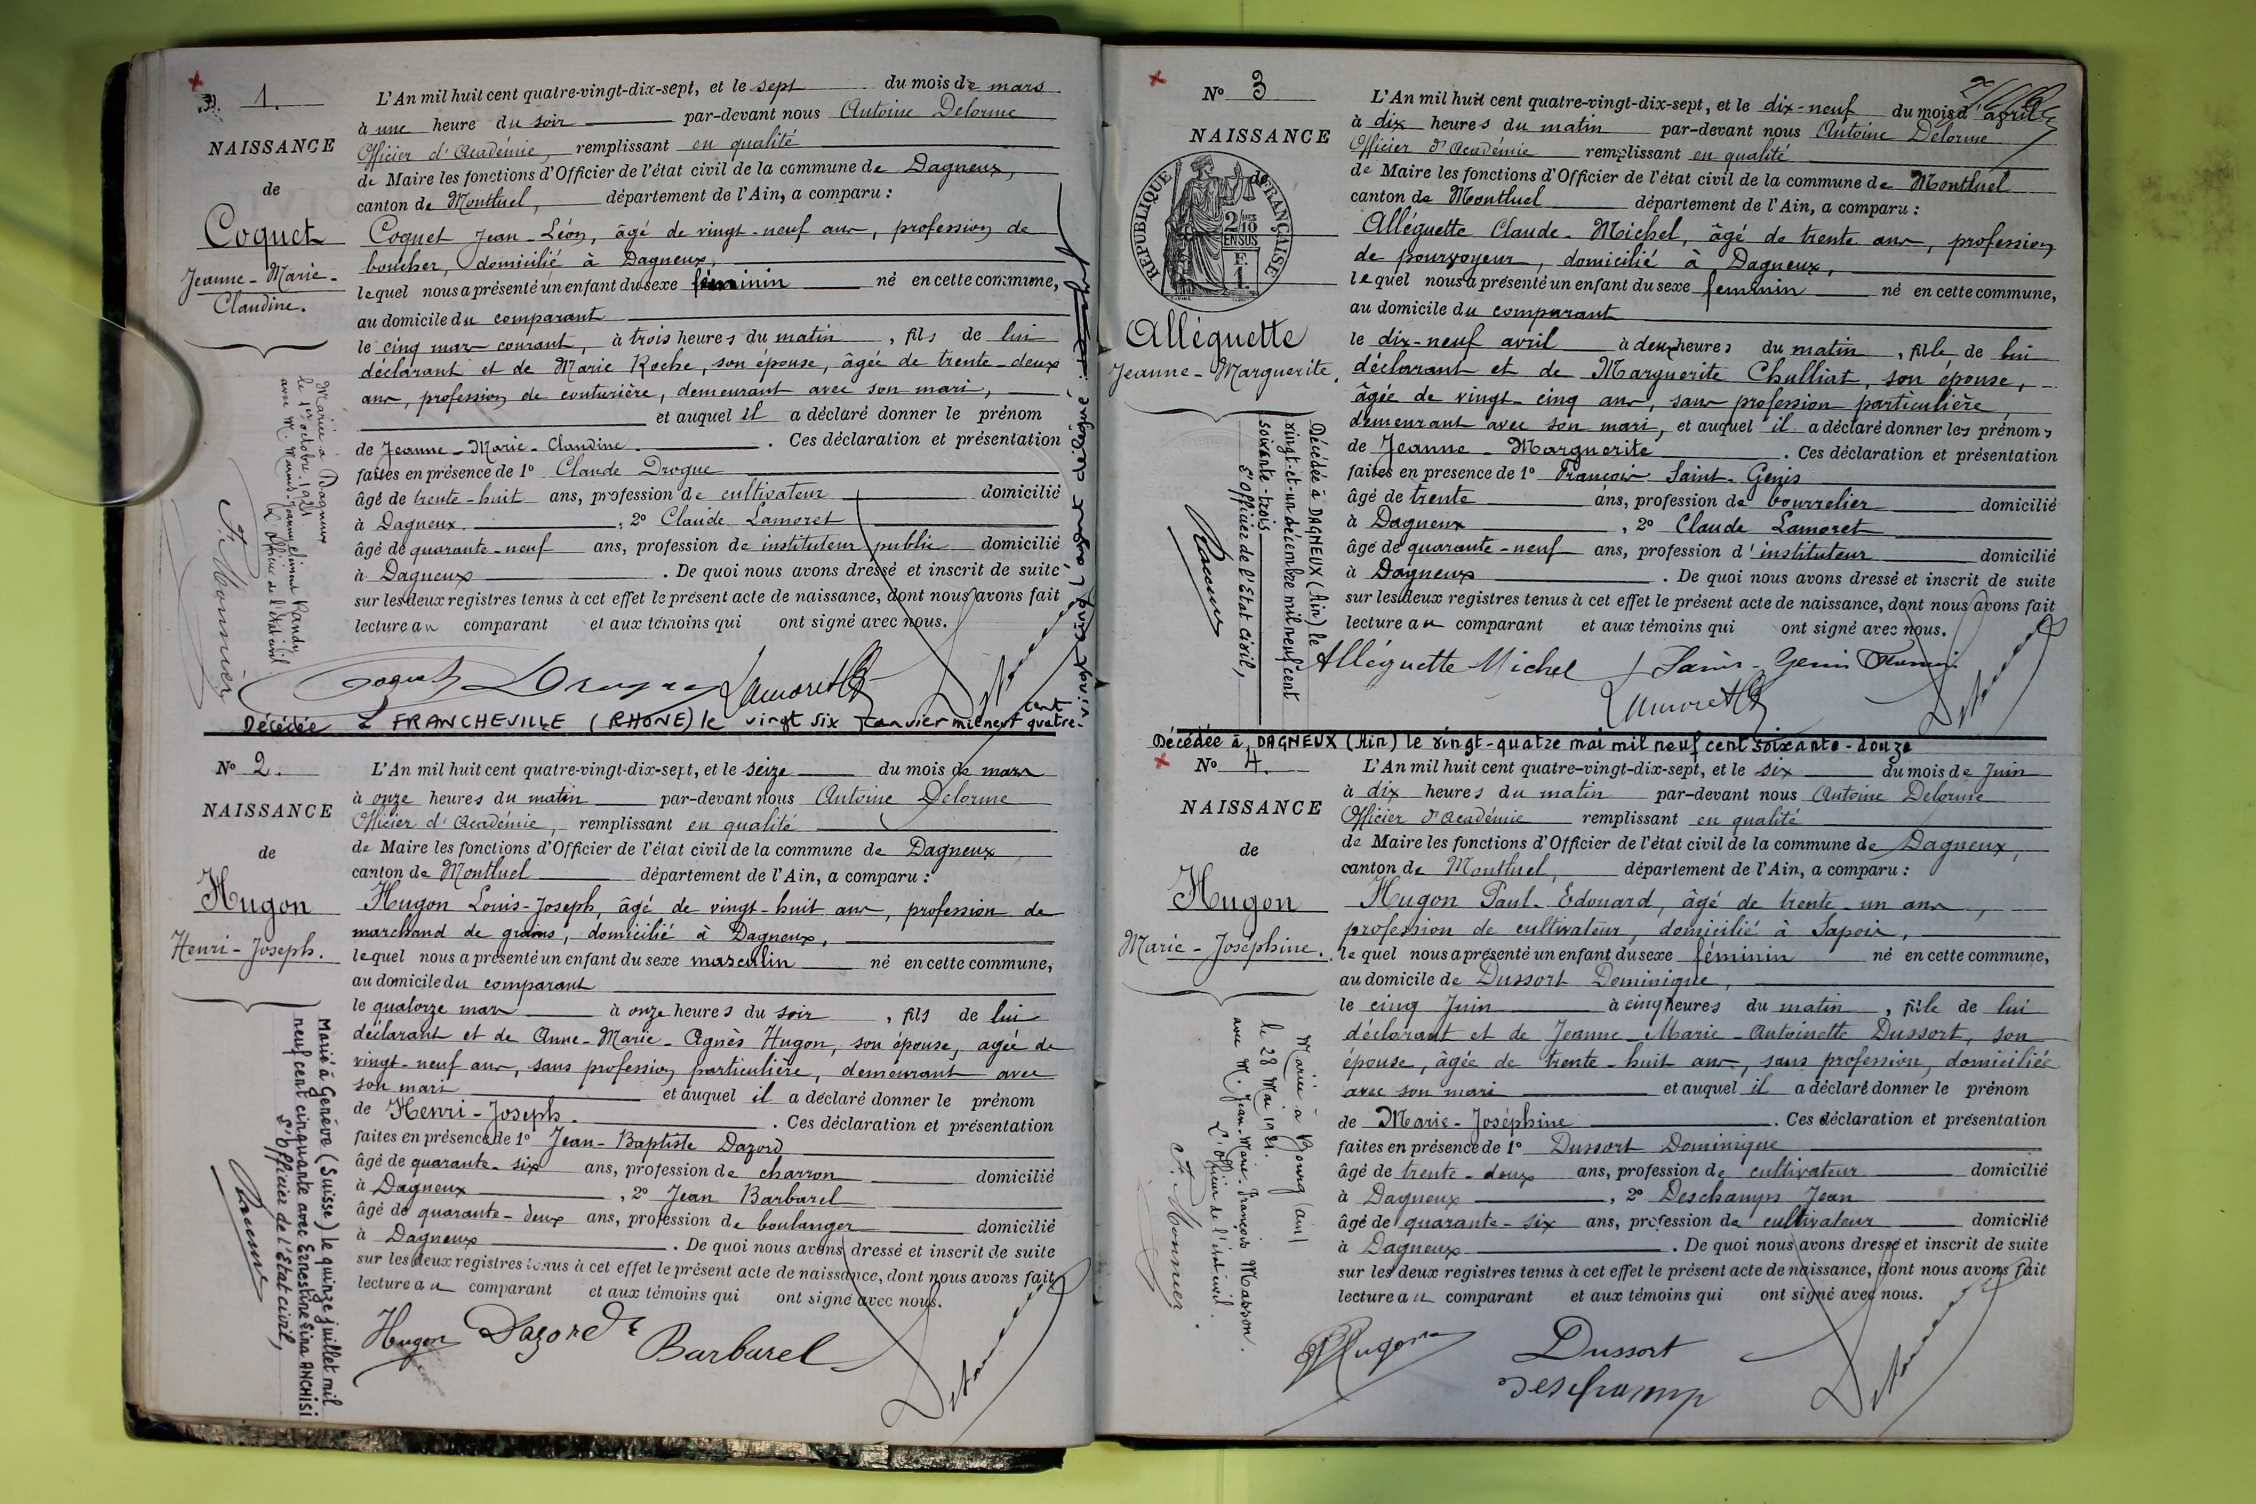 N° 1.
NAISSANCE
de
Coquet
Jeanne-Marie-
Claudine.
Mariée à Dagneux
le 1er octobre 1921
avec M. Marius-Jeanny Clément Pandy
L'officier de l'état civil
F. Monnier
L'An mil huit cent quatre-vingt-dix-sept, et le sept du mois de mars
à une heure du soir par-devant nous Antoine Delorme
Officier d'Académie, remplissant en qualité
de Maire les fonctions d'Officier de l'état civil de la commune de Dagneux,
canton de Montluel, département de l'Ain, a comparu :
Coquet Jean-Léon, âgé de vingt-neuf ans, profession de
boucher, domicilié à Dagneux,
lequel nous a présenté un enfant du sexe féminin né en cette commune,
au domicile du comparant
le cinq mars courant, à trois heures du matin, fils de lui
déclarant et de Marie Roche, son épouse, âgée de trente-deux
ans, profession de couturière, demeurant avec son mari,
et auquel il a déclaré donner le prénom
de Jeanne-Marie-Claudine. Ces déclaration et présentation
faites en présence de 1° Claude Drogue
âgé de trente-huit ans, profession de cultivateur domicilié
à Dagneux, 2° Claude Lamoret
âgé de quarante-neuf ans, profession de instituteur public domicilié
à Dagneux. De quoi nous avons dressé et inscrit de suite
sur les deux registres tenus à cet effet le présent acte de naissance, dont nous avons fait
lecture au comparant et aux témoins qui ont signé avec nous.
Coquet Drogue Lamoret Delorme
Décédée à FRANCHEVILLE (RHONE) le vingt six Janvier mil neuf cent quatre-
vingt cinq L'agent délégué:
N° 2.
NAISSANCE
de
Hugon
Henri-Joseph.
Marié à Genève (Suisse) le quinze juillet mil
neuf cent cinquante avec Ernestine Gina ANCHISI
L'Officier de l'Etat civil,
L'An mil huit cent quatre-vingt-dix-sept, et le seize du mois de mars
à onze heures du matin par-devant nous Antoine Delorme
Officier d'Académie, remplissant en qualité
de Maire les fonctions d'Officier de l'état civil de la commune de Dagneux,
canton de Montluel département de l'Ain, a comparu :
Hugon Louis-Joseph, âgé de vingt-huit ans, profession de
marchand de grains, domicilié à Dagneux,
lequel nous a présenté un enfant du sexe masculin né en cette commune,
au domicile du comparant
le quatorze mars à onze heures du soir, fils de lui
déclarant et de Anne-Marie-Agnès Hugon, son épouse, agée de
vingt-neuf ans, sans profession particulière, demeurant avec
son mari et auquel il a déclaré donner le prénom
de Henri-Joseph. Ces déclaration et présentation
faites en présence de 1° Jean-Baptiste Dazord
âgé de quarante-six ans, profession de charron domicilié
à Dagneux, 2° Jean Barbarel
âgé de quarante-deux ans, profession de boulanger domicilié
à Dagneux. De quoi nous avons dressé et inscrit de suite
sur les deux registres tenus à cet effet le présent acte de naissance, dont nous avons fait
lecture au comparant et aux témoins qui ont signé avec nous.
Hugon Dazord Barbarel Delorme
N° 3
NAISSANCE
de
RÉPUBLIQUE FRANÇAISE
2/10 EN SUS
Alléguette
Jeanne-Marguerite.
Décédée à DAGNEUX (Ain) le
vingt-et-un décembre mil neuf cent
soixante-trois
L'Officier de l'Etat civil,
L'An mil huit cent quatre-vingt-dix-sept, et le dix-neuf du mois d'avril
à dix heures du matin par-devant nous Antoine Delorme
Officier d'Académie remplissant en qualité
de Maire les fonctions d'Officier de l'état civil de la commune de Montluel
canton de Montluel département de l'Ain, a comparu :
Alléguette Claude-Michel, âgé de trente ans, profession
de pourvoyeur, domicilié à Dagneux,
lequel nous a présenté un enfant du sexe féminin né en cette commune,
au domicile du comparant
le dix-neuf avril à deux heures du matin, fille de lui
déclarant et de Marguerite Chulliat, son épouse,
âgée de vingt-cinq ans, sans profession particulière,
demeurant avec son mari, et auquel il a déclaré donner les prénoms
de Jeanne-Marguerite. Ces déclaration et présentation
faites en présence de 1° François Saint-Genis
âgé de trente ans, profession de bourrelier domicilié
à Dagneux, 2° Claude Lamoret
âgé de quarante-neuf ans, profession d'instituteur domicilié
à Dagneux. De quoi nous avons dressé et inscrit de suite
sur les deux registres tenus à cet effet le présent acte de naissance, dont nous avons fait
lecture au comparant et aux témoins qui ont signé avec nous.
Alléguette Michel Saint-Genis
Lamoret Delorme
Décédée à DAGNEUX (Ain) le vingt-quatre mai mil neuf cent soixante-douze
N° 4.
NAISSANCE
de
Hugon
Marie-Joséphine.
Mariée à Bourg (Ain)
le 28 Mai 1921.
avec M. Jean-Marie-François Masson.
L'officier de l'état civil.
F. Monnier.
L'An mil huit cent quatre-vingt-dix-sept, et le six du mois de Juin
à dix heures du matin par-devant nous Antoine Delorme
Officier d'Académie remplissant en qualité
de Maire les fonctions d'Officier de l'état civil de la commune de Dagneux,
canton de Montluel, département de l'Ain, a comparu :
Hugon Paul-Edouard, âgé de trente-un ans,
profession de cultivateur, domicilié à Sapois,
lequel nous a présenté un enfant du sexe féminin né en cette commune,
au domicile de Dussort Dominique,
le cinq Juin à cinq heures du matin, fille de lui
déclarant et de Jeanne-Marie-Antoinette Dussort, son
épouse, âgée de trente-huit ans, sans profession, domiciliée
avec son mari et auquel il a déclaré donner le prénom
de Marie-Joséphine. Ces déclaration et présentation
faites en présence de 1° Dussort Dominique
âgé de trente-deux ans, profession de cultivateur domicilié
à Dagneux, 2° Deschamps Jean
âgé de quarante-six ans, profession de cultivateur domicilié
à Dagneux. De quoi nous avons dressé et inscrit de suite
sur les deux registres tenus à cet effet le présent acte de naissance, dont nous avons fait
lecture au comparant et aux témoins qui ont signé avec nous.
Hugon Dussort
Deschamp Delorme